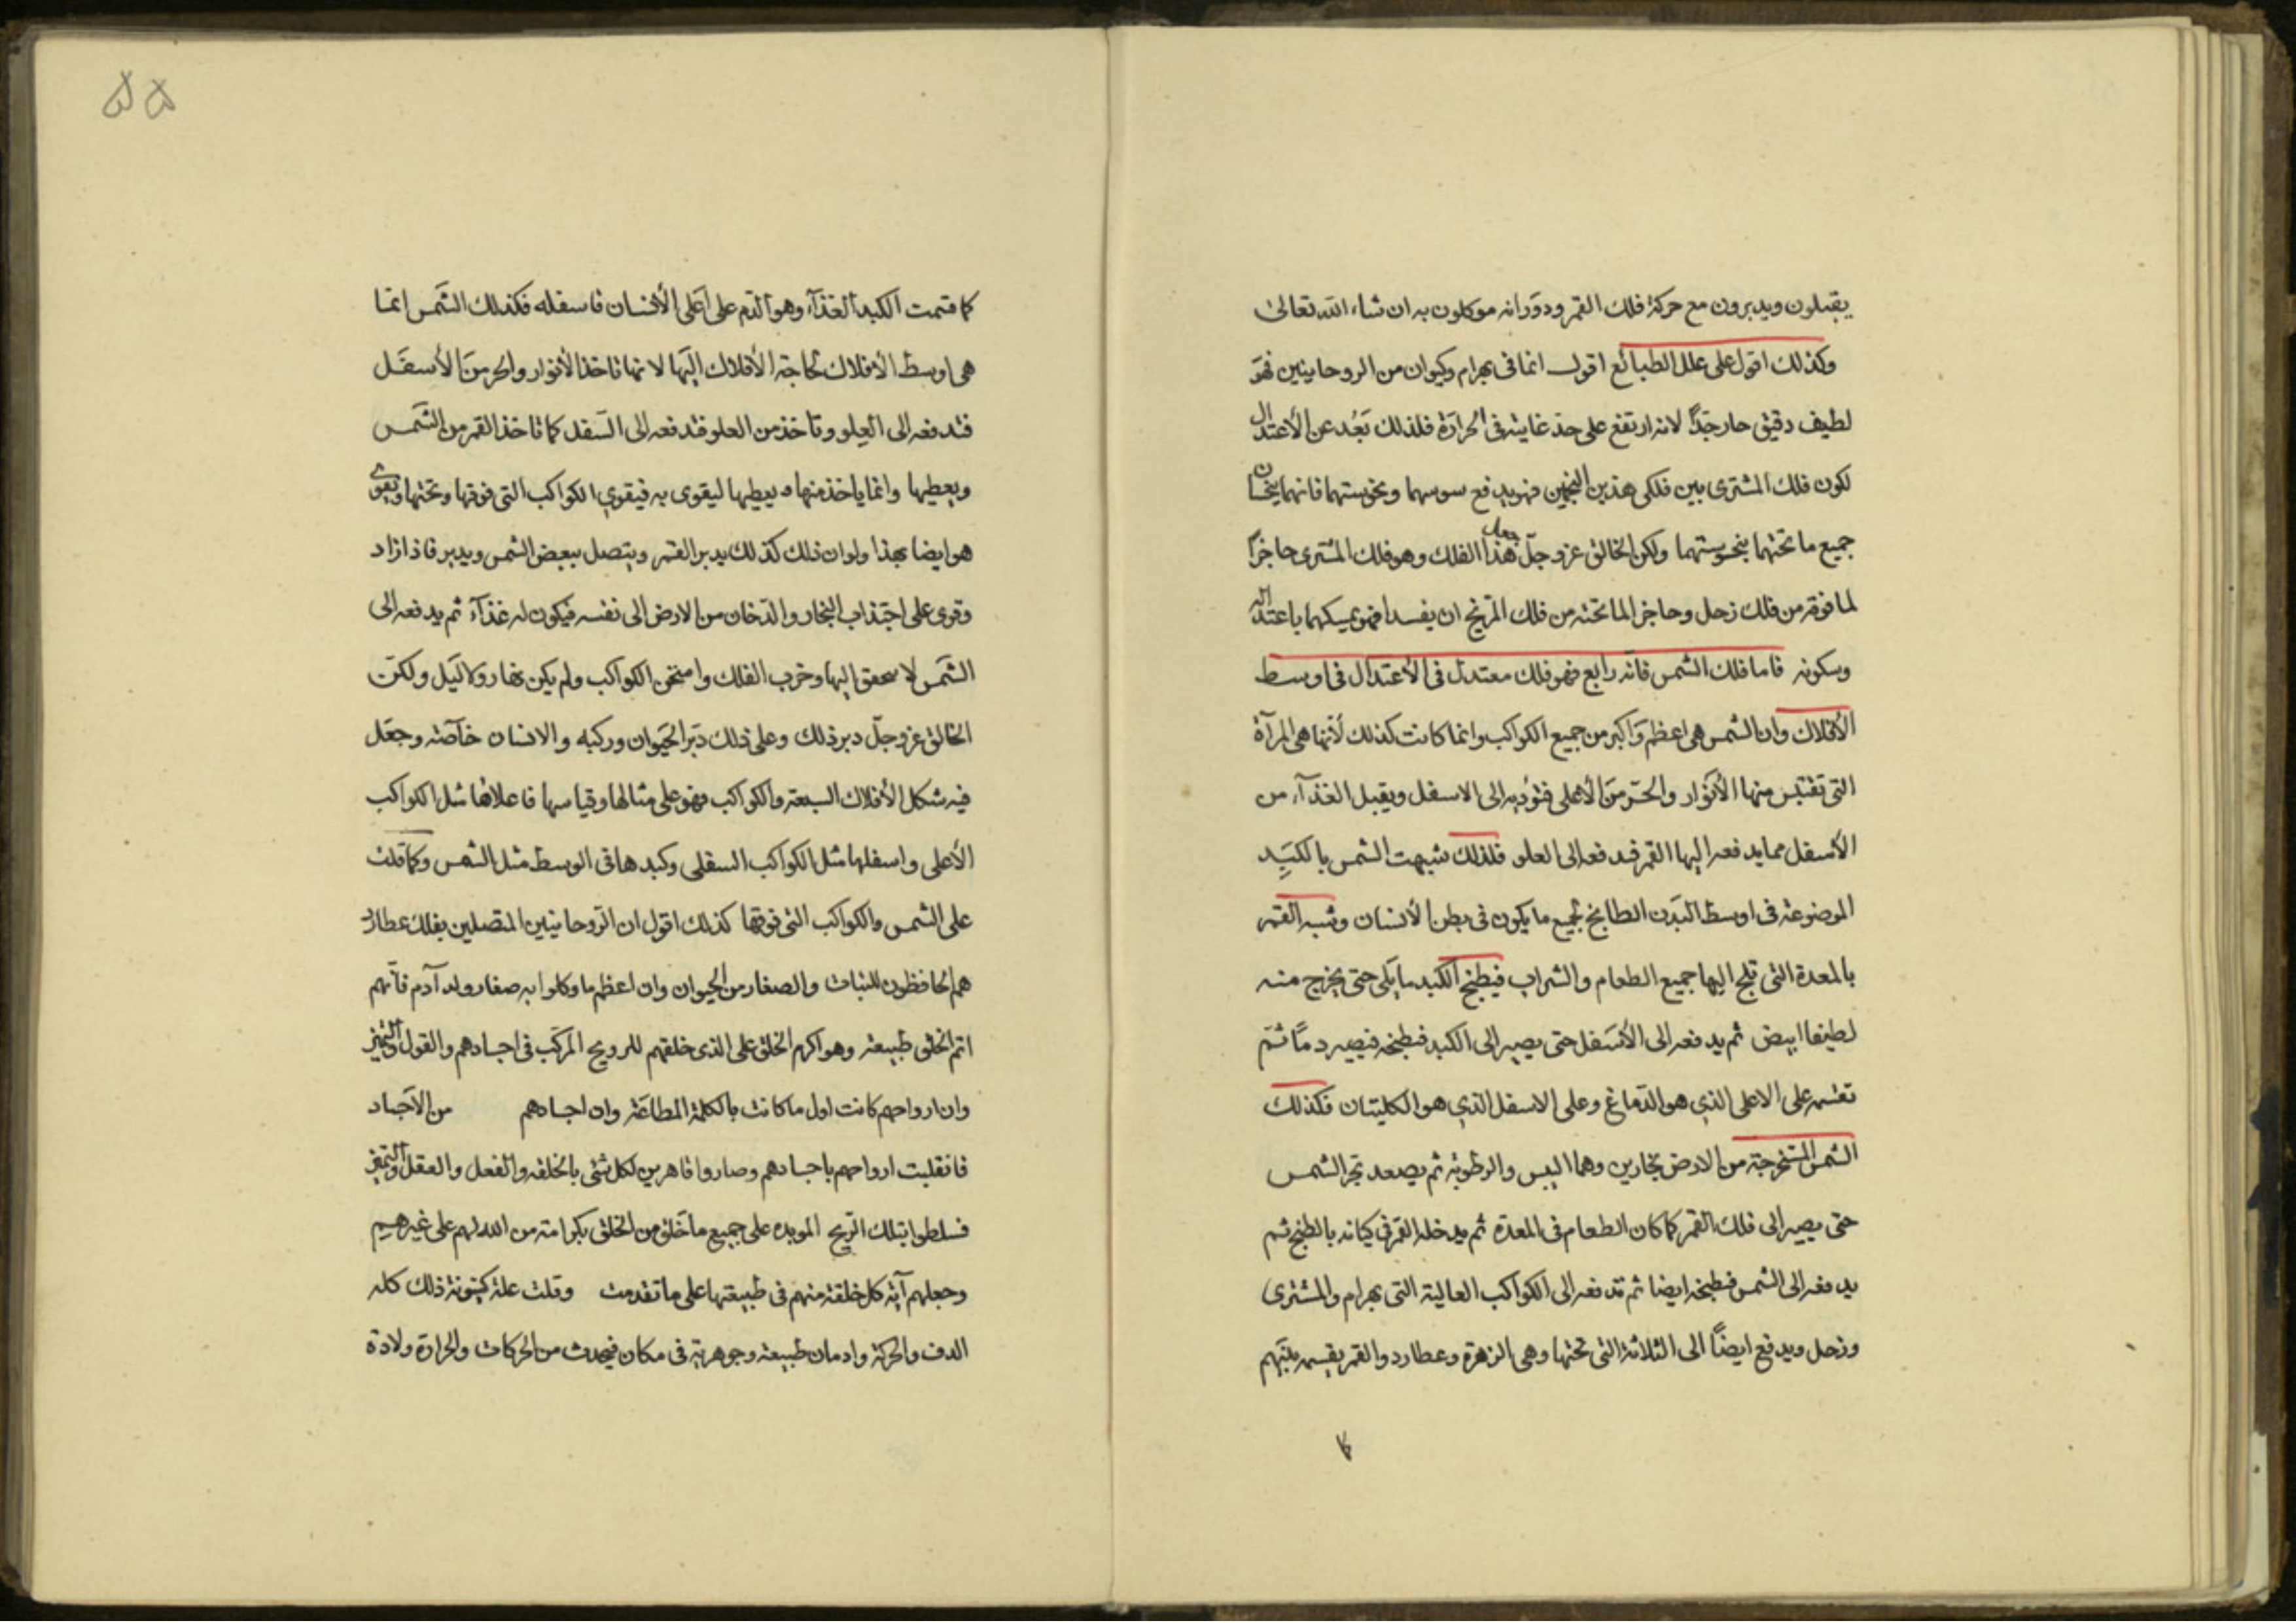 يقبلون ويدبرون مع حركة فلك القمر ودورانه موكلون به ان شاء الله تعالى
وكذلك اقول على علل الطبائع اقول انما فى بهرام وكيوان من الروحانيين فهو
لطيف دقيق حار جدًا لانه ارتفع على حد غايته فى الحرارة فلذلك بَعُد عن الأعتدال
لكون فلك المشترى بين فلكى هذين النجمين فهو يدفع سوسهما ونحوستهما فانهما ينحسان
جميع ما تحتهما بنحوستهما ولكن الخالق عز وجلّ جعل هذا الفلك وهو فلك المشترى حاجزًا
لما فوقه من فلك زحل وحاجز الما تحته من فلك المريخ ان يفسدا فهو يمسكهما باعتداله
وسكونه فاما فلك الشمس فانه رابع فهو فلك معتدل فى الأعتدال فى اوسط
الأفلاك وان الشمس هى اعظم واكبر من جميع الكواكب وانما كانت كذلك لأنها هى المرآة
التى تقتبس منها الأنوار والحرّ من الأعلى فتؤديه الى الاسفل ويقبل الغذآء من
الأسفل مما يدفعه اليها القمر فيدفعه الى العلو فلذلك شبهت الشمس بالكبد
الموضوعة فى اوسط البدن الطابخ لجميع ما يكون فى بطن الأنسان وشبه القمر
بالمعدة التى تلج اليها جميع الطعام والشراب فيطبخ الكبد ما يلى حتى يخرج منه
لطيفا ابيض ثم يدفعه الى الأسفل حتى يصير الى الكبد فطبخه فيصير دمًا ثمّ
تقسمه على الاعلى الذى هو الدماغ وعلى الاسفل الذى هو الكليتان فكذلك
الشمس المستخرجة من الارض بخارين وهما اليبس والرطوبة ثم يصعد بحر الشمس
حتى يصير الى فلك القمر كما كان الطعام فى المعدة ثم يدخله القمر فى كيانه بالطبخ ثم
يدفعه الى الشمس فطبخه ايضا ثم تدفعه الى الكواكب العالية التى بهرام والمشترى
وزحل ويدفع ايضًا الى الثلاثة التى تحتها وهى الزهرة وعطارد والقمر يقسمه بينهم
كما
كما قسمت الكبد الغذآء وهو الدم على اعلى الأنسان فاسفله فكذلك الشمس انما
هى اوسط الأفلاك لحاجة الأفلاك اليها لانها تاخذ الأنوار والحر من الأسفل
فتدفعه الى العلو وتأخذ من العلو فتدفعه الى السفل كما تاخذ القمر من الشمس
ويعطيها وانما ياخذ منها ويعطيها ليقوى به فيقوى الكواكب التى فوقها وتحتها ويقوى
هو ايضا بهذا ولو ان ذلك كذلك يدبر القمر ويتصل ببعض الشمس ويدبر فاذا زاد
وقوى على اجتذاب البخار والدخان من الارض الى نفسه فيكون له غذآء ثم يدفعه الى
الشمس لا اليها وخرب الفلك وامتحن الكواكب ولم يكن نهار ولا ليل ولكن
الخالق عز وجلّ دبر ذلك وعلى ذلك دبر الحيوان وركبه والانسان خآصته وجعل
فيه شكل الأفلاك السبعة والكواكب فهو على مثالها وقياسها فاعلاها مثل الكواكب
الأعلى واسفلها مثل الكواكب السفلى وكبدها فى الوسط مثل الشمس وكما قلت
على الشمس والكواكب التى فوقها كذلك اقول ان الروحانيين المتصلين بفلك عطارد
هم الحافظون للنبات والصغار من الحيوان وان اعظم ما وكلوا به صغار ولد آدم فانهم
اتم الخلق طبيعة وهو اكرم الخلق على الذى خلقهم للروح المركب فى اجسادهم والقول والتميز
وان ارواحهم كانت اول ما كانت بالكلمة المطاعة وان اجسادهم من الأجساد
فانقلبت ارواحهم باجسادهم وصاروا قاهرين لكل شئ بالخلقه والفعل والعقل والتميز
فسلطوا بتلك الريح المويده على جميع ما خلق من الخلق بكرامة من الله لهم على غيرهم
وجعلهم آية كل خلقة منهم فى طبيعتها على ما تقدمت وقلت علة كينونة ذلك كله
الدف والحركة وادمان طبيعة وجوهرية فى مكان فيحدث من الحركات والحرارة ولادة